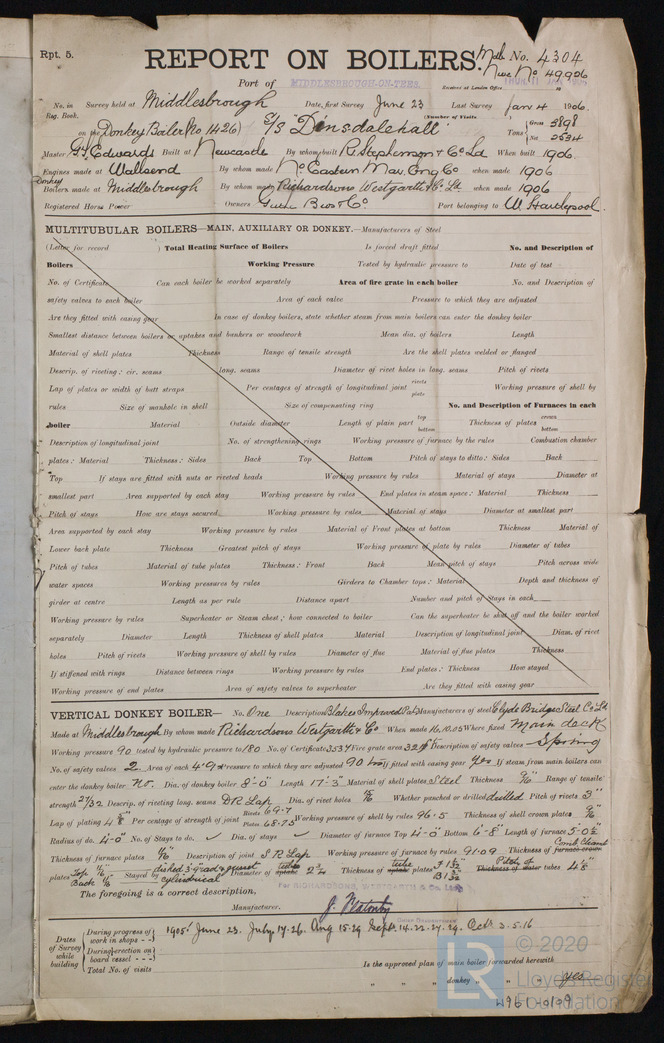 Rpt. 5.
REPORT ON BOILERS.
Mdb No. 4304
Nwc No 49906
Port of MIDDLESBROUGH-ON-TEES.
Received at London Office
No. in Survey held at Middlesbrough Date, first Survey June 23 Last Survey Jan 4 1906.
Reg. Book. (Number of Visits
on the Donkey Boiler No 1426) S/S "Dinsdalehall" Tons Gross 3898
Net 2534
Master G. Edwards Built at Newcastle By whom built R. Stephenson & Co Ld When built 1906
Engines made at Wallsend By whom made No Eastern Mar. Eng Co when made 1906
Donkey
Boilers made at Middlesbrough By whom made Richardsons Westgarth & Co Ld when made 1906
Registered Horse Power Owners Bros & Co. Port belonging to W. Hartlepool.
MULTITUBULAR BOILERS—MAIN, AUXILIARY OR DONKEY.—Manufacturers of Steel
(Letter for record ) Total Heating Surface of Boilers Is forced draft fitted No. and Description of
Boilers Working Pressure Tested by hydraulic pressure to Date of test
No. of Certificate Can each boiler be worked separately Area of fire grate in each boiler No. and Description of
safety valves to each boiler Area of each valve Pressure to which they are adjusted
Are they fitted with easing gear In case of donkey boilers, state whether steam from main boilers can enter the donkey boiler
Smallest distance between boilers or uptakes and bunkers or woodwork Mean dia. of boilers Length
Material of shell plates Thickness Range of tensile strength Are the shell plates welded or flanged
Descrip. of riveting: cir. seams long. seams Diameter of rivet holes in long. seams Pitch of rivets
Lap of plates or width of butt straps Per centages of strength of longitudinal joint rivets plates Working pressure of shell by
rules Size of manhole in shell Size of compensating ring No. and Description of Furnaces in each
boiler Material Outside diameter Length of plain part top bottom Thickness of plates crown bottom
Description of longitudinal joint No. of strengthening rings Working pressure of furnace by the rules Combustion chamber
plates: Material Thickness: Sides Back Top Bottom Pitch of stays to ditto: Sides Back
Top If stays are fitted with nuts or riveted heads Working pressure by rules Material of stays Diameter at
smallest part Area supported by each stay Working pressure by rules End plates in steam space: Material Thickness
Pitch of stays How are stays secured Working pressure by rules Material of stays Diameter at smallest part
Area supported by each stay Working pressure by rules Material of Front plates at bottom Thickness Material of
Lower back plate Thickness Greatest pitch of stays Working pressure of plate by rules Diameter of tubes
Pitch of tubes Material of tube plates Thickness: Front Back Mean pitch of stays Pitch across wide
water spaces Working pressures by rules Girders to Chamber tops: Material Depth and thickness of
girder at centre Length as per rule Distance apart Number and pitch of Stays in each
Working pressure by rules Superheater or Steam chest; how connected to boiler Can the superheater be shut off and the boiler worked
separately Diameter Length Thickness of shell plates Material Description of longitudinal joint Diam. of rivet
holes Pitch of rivets Working pressure of shell by rules Diameter of flue Material of flue plates Thickness
If stiffened with rings Distance between rings Working pressure by rules End plates: Thickness How stayed
Working pressure of end plates Area of safety valves to superheater Are they fitted with easing gear
VERTICAL DONKEY BOILER— No. One Description Blakes Improved Pat. Manufacturers of steel Clyde Bridge Steel Co Ld
Made at Middlesbrough By whom made Richardsons Westgarth & Co When made 16.10.05 Where fixed Main deck
Working pressure 90 tested by hydraulic pressure to 180 No. of Certificate 3534 Fire grate area 32 Description of safety valves Spring
No. of safety valves 2 Area of each 4.9 Pressure to which they are adjusted 90 lbs If fitted with easing gear yes If steam from main boilers can
enter the donkey boiler No. Dia. of donkey boiler 8'-0" Length 17'-3" Material of shell plates Steel Thickness 9/16" Range of tensile
strength 27/32 Descrip. of riveting long. seams DR Lap Dia. of rivet holes Whether punched or drilled drilled Pitch of rivets 3"
Lap of plating 4 5/8" Per centage of strength of joint Rivets 69.7 Plates 68.75 Working pressure of shell by rules 96.5 Thickness of shell crown plates 9/16"
Radius of do. 4'-0" No. of Stays to do. ✓ Dia. of stays ✓ Diameter of furnace Top 4'-0" Bottom 6'-8" Length of furnace 5-0½"
Thickness of furnace plates Description of joint S R Lap Working pressure of furnace by rules 91.09 Thickness of furnace crown Comb. Chamb
plates Top Back Stayed by dished 3'-9" rad & gusset cylindrical Diameter of uptake tube 2½ Thickness of uptake tube plates Thickness of water tubes Pitch of
The foregoing is a correct description,
For RICHARDSONS, WESTGARTH & Co. Ld.
Manufacturer.
Dates of Survey while building
During progress of work in shops - - 1905: June 23. July 17.26. Aug 15.29. Sept. 14.22.27.29. Oct. 3.5.16
During erection on board vessel - - -
Total No. of visits
Is the approved plan of main boiler forwarded herewith
" " " donkey " " " yes
© 2020
LR Lloyd's Register
Foundation
W961-0109